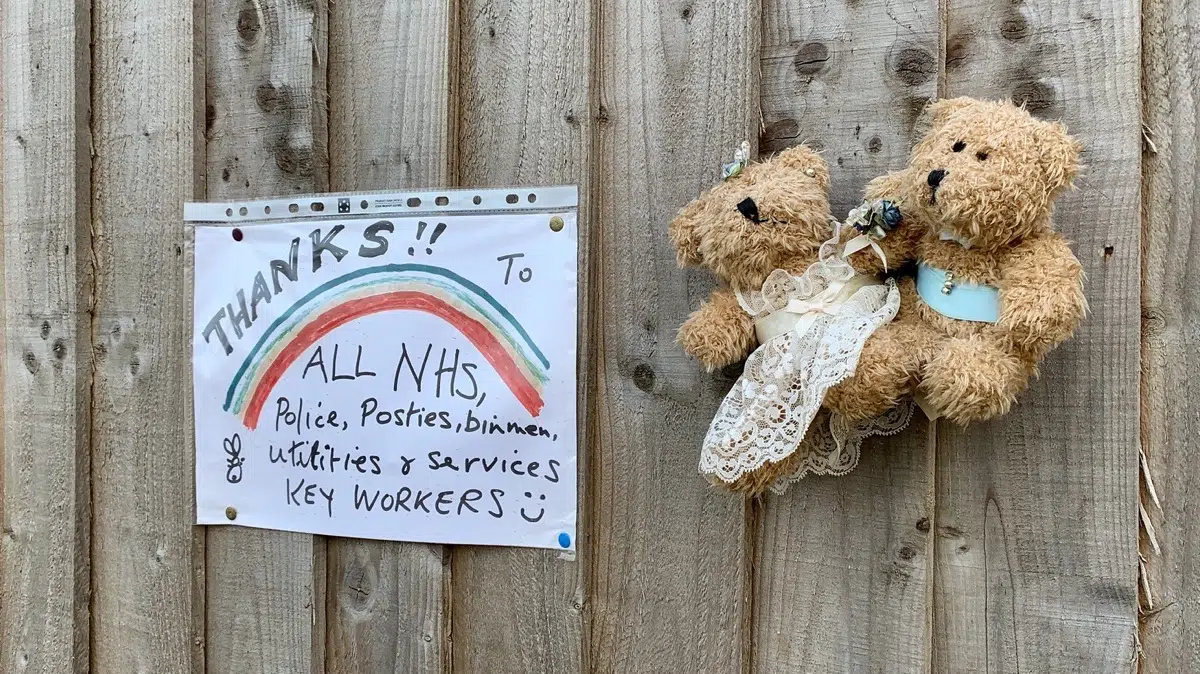 THANKS!!
To
ALL NHS,
Police, Posties, binmen,
utilities & services
KEY WORKERS